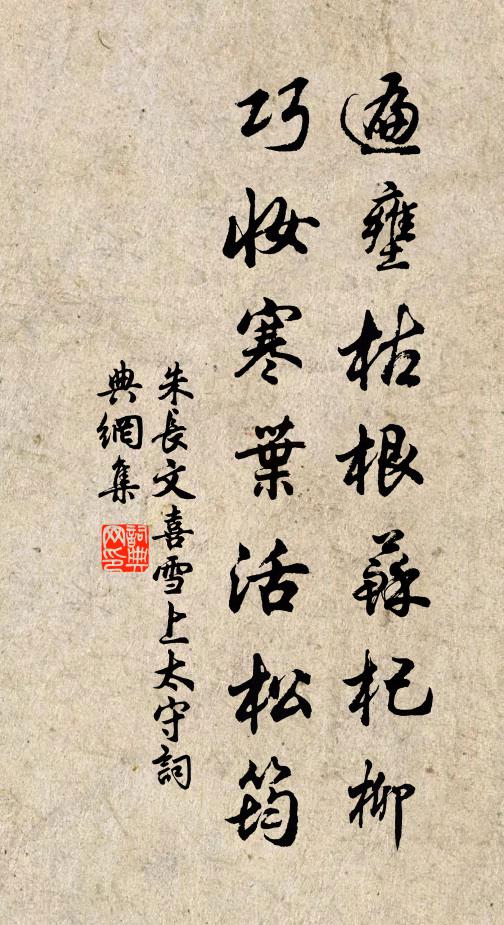 遍壅枯根蘇杞柳
巧妝寒葉活松筠
朱長文喜雪上太守詞
典網集
詞典网印